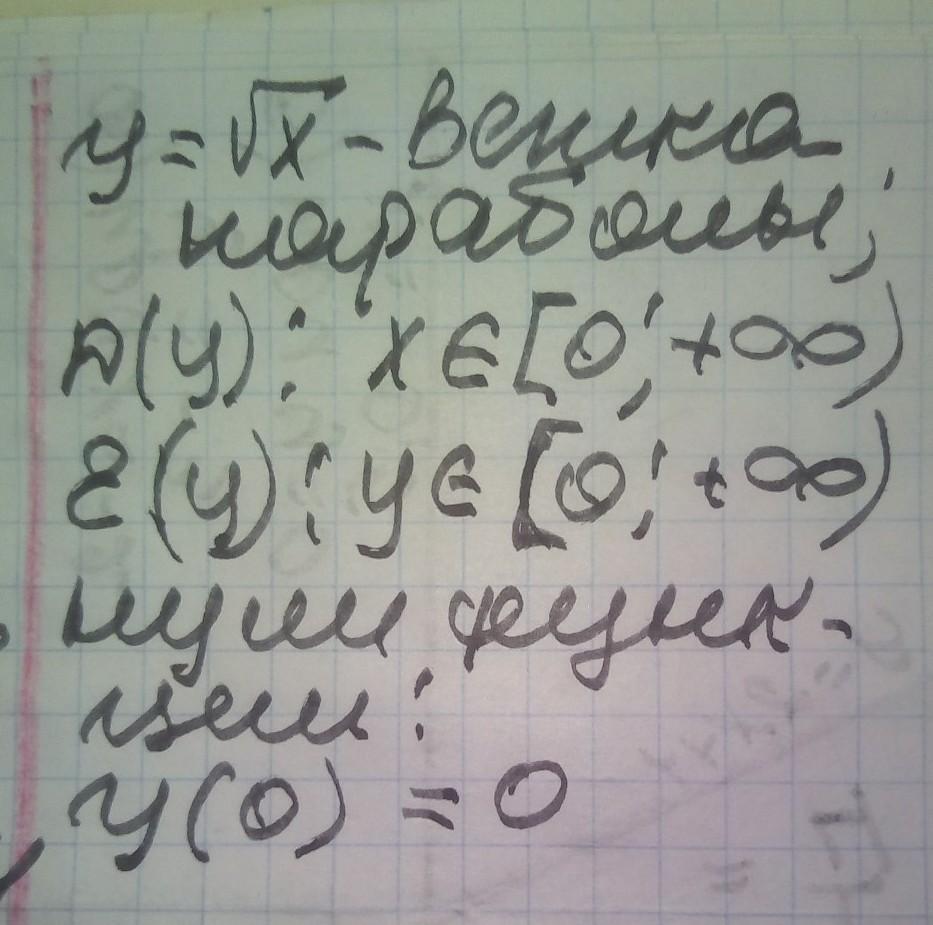 y = √x - ветка
параболы;
D(y): x ∈ [0; +∞)
E(y): y ∈ [0; +∞)
нули функ-
ции:
y(0) = 0